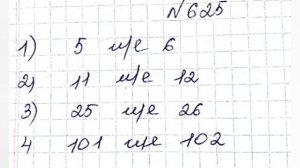 №625
1) 5 и/е 6
2) 11 и/е 12
3) 25 и/е 26
4 101 и/е 102